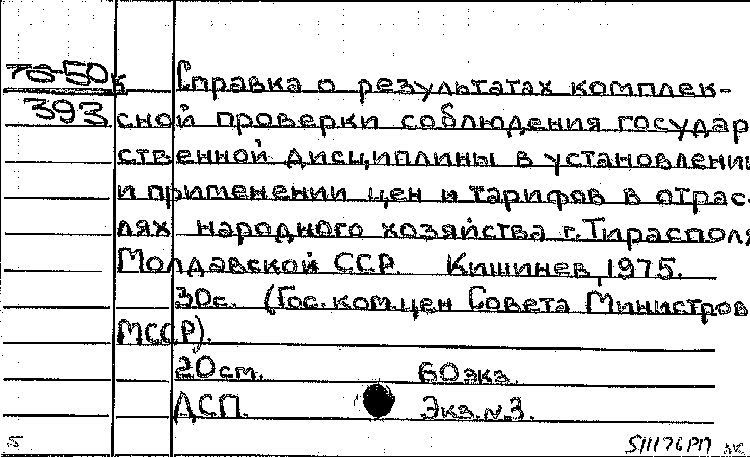 76-50
393
Справка о результатах комплек-
сной проверки соблюдения государ
ственной дисциплины в установлении
и применении цен и тарифов в отрас-
лях народного хозяйства г. Тирасполя
Молдавской ССР. Кишинев, 1975.
30с. (Гос. ком. цен Совета Министров
МССР).
20 см. 60 экз.
ДСП. Экз. N. 3.